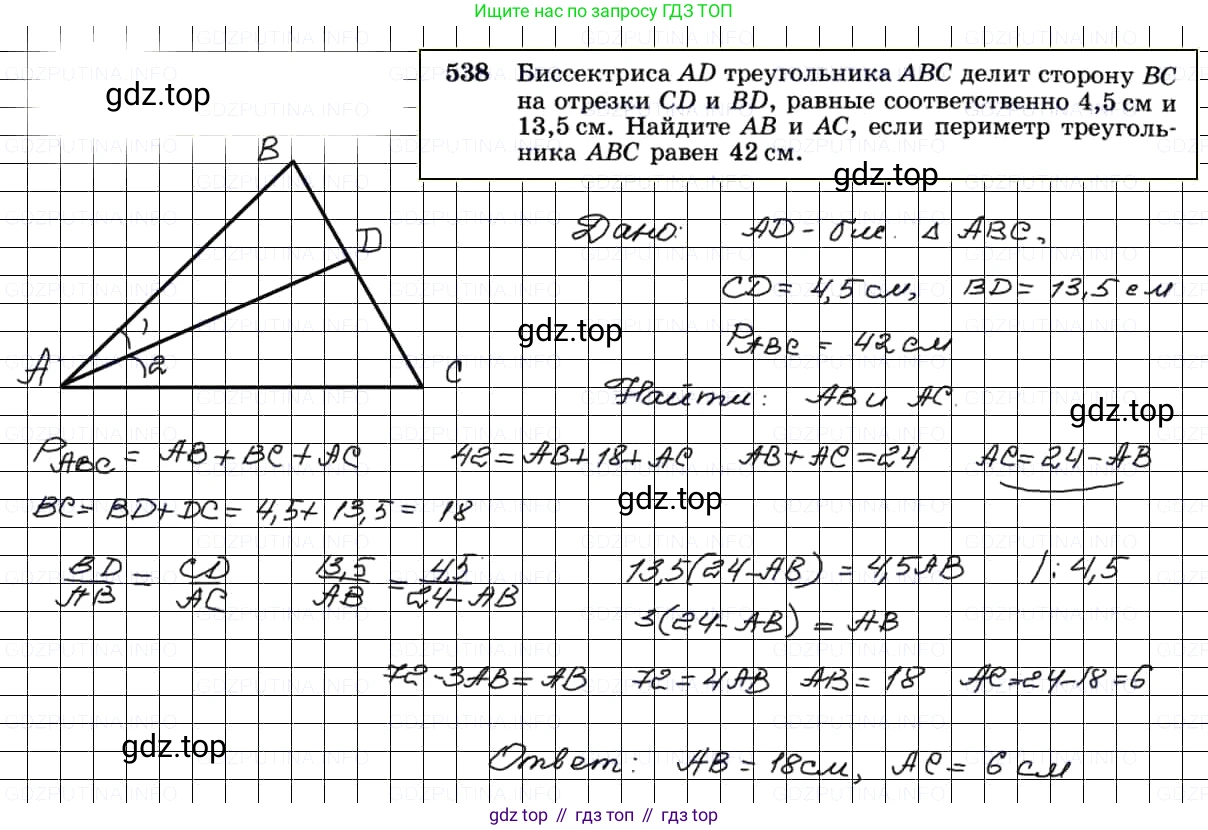 Ищите нас по запросу ГДЗ ТОП
gdz.top
538 Биссектриса AD треугольника ABC делит сторону BC
на отрезки CD и BD, равные соответственно 4,5 см и
13,5 см. Найдите AB и AC, если периметр треуголь-
ника ABC равен 42 см.
gdz.top
B
D
A
1
2
C
Дано: AD - бис. Δ ABC,
CD = 4,5 см, BD = 13,5 см
gdz.top
PABC = 42 см
Найти: AB и AC.
gdz.top
PABC = AB + BC + AC 42 = AB + 18 + AC AB + AC = 24 AC = 24 - AB
gdz.top
BC = BD + DC = 4,5 + 13,5 = 18
BD/AB = CD/AC 13,5/AB = 4,5/24-AB 13,5(24-AB) = 4,5AB /: 4,5
3(24-AB) = AB
72-3AB = AB 72 = 4AB AB = 18 AC = 24-18 = 6
gdz.top
Ответ: AB = 18 см, AC = 6 см
gdz top // гдз топ // gdz top
GDZPUTINA.INFO